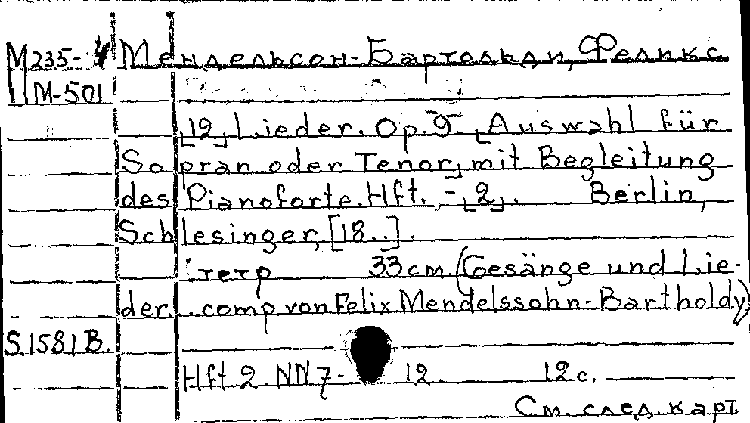 М235-4 Мендельсон-Бартольди, Феликс
М-501
[12] Lieder. Op. 9 [Auswahl für
Sopran oder Tenor] mit Begleitung
des Pianoforte. Hft. - [2]. Berlin,
Schlesinger, [18..].
1 тетр 33 см. (Gesänge und Lie-
der... comp von Felix Mendelssohn-Bartholdy)
S.1581B.
Hft 2. NN 7- 12. 12 с.
См. след. карт